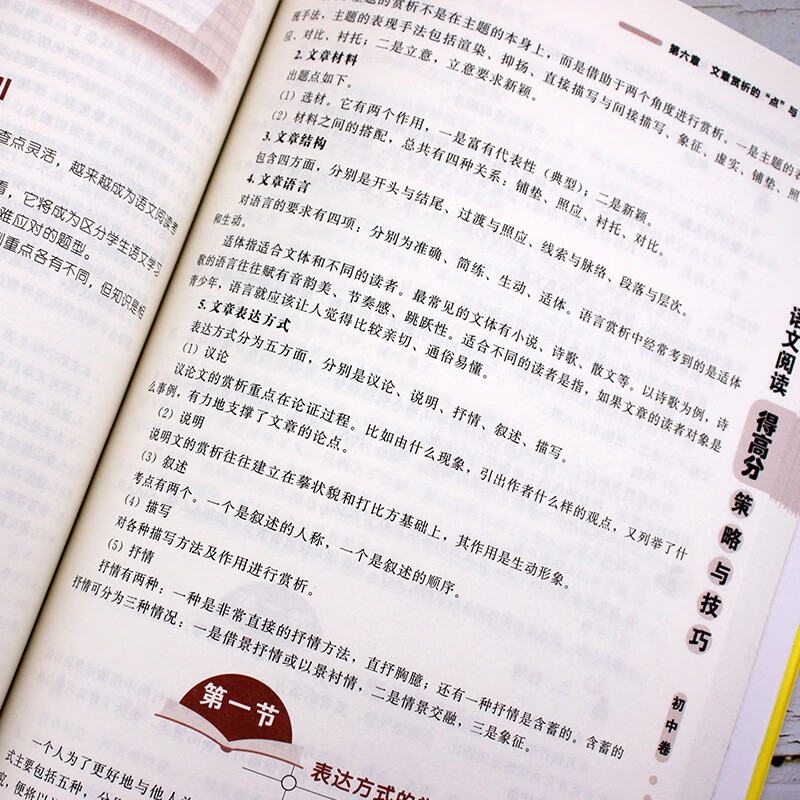 查点灵活，越来越成为语文阅读考
看，它将成为区分学生语文学习
难应对的题型。
重点各有不同，但知识是相
第六章 文章赏析的“点”与
的赏析不是在主题的本身上，而是借助于两个角度进行赏析。一是主题的表
现手法，主题的表现手法包括渲染、抑扬、直接描写与间接描写、象征、虚实、铺垫、照
应、对比、衬托；二是立意，立意要求新颖。
2. 文章材料
出题点如下。
（1）选材。它有两个作用，一是富有代表性（典型）；二是新颖。
（2）材料之间的搭配，总共有四种关系：铺垫、照应、衬托、对比。
3. 文章结构
包含四方面，分别是开头与结尾、过渡与照应、线索与脉络、段落与层次。
4. 文章语言
对语言的要求有四项：分别为准确、简练、生动、适体。语言赏析中经常考到的是适体
和生动。
适体指适合文体和不同的读者。最常见的文体有小说、诗歌、散文等。以诗歌为例，诗
歌的语言往往赋有音韵美、节奏感、跳跃性。适合不同的读者是指，如果文章的读者对象是
青少年，语言就应该让人觉得比较亲切、通俗易懂。
5. 文章表达方式
表达方式分为五方面，分别是议论、说明、抒情、叙述、描写。
（1）议论
议论文的赏析重点在论证过程。比如由什么现象，引出作者什么样的观点，又列举了什
么事例，有力地支撑了文章的论点。
（2）说明
说明文的赏析往往建立在摹状貌和打比方基础上，其作用是生动形象。
（3）叙述
考点有两个。一个是叙述的人称，一个是叙述的顺序。
（4）描写
对各种描写方法及作用进行赏析。
（5）抒情
抒情有两种：一种是非常直接的抒情方法，直抒胸臆；还有一种抒情是含蓄的。含蓄的
抒情可分为三种情况：一是借景抒情或以景衬情，二是情景交融，三是象征。
第一节
表达方式的
一个人为了更好地与他人
式主要包括五种，分
便将以
语文阅读
得高分
策略与技巧
初中卷